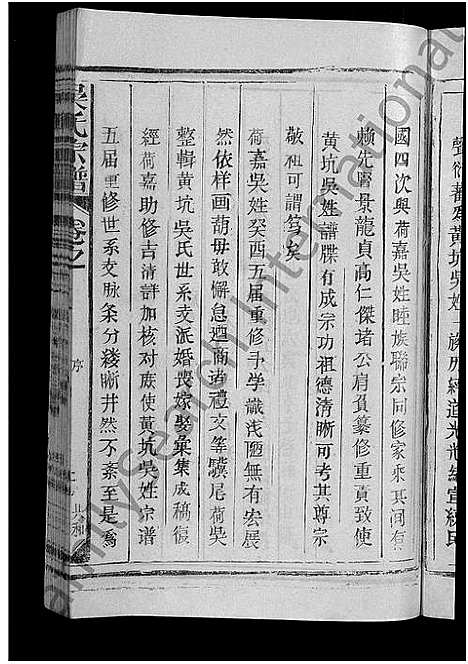 馨衍蕃為黃坑吳姓 族歷經道光光緒宣統民
國四次與荷嘉吳姓睦族聯宗同修家乘其间有
賴先賢景龍貞高仁傑諸公肩負纂修重責致使
黃坑吳姓譜牒有成宗功祖德清晰可考其尊宗
敬祖可謂篤矣
荷嘉吳姓癸酉五届重修予学識浅陋無有宏展
然依样画葫毋敢懈怠廻商诸禮文等驥尾荷吳
整輯黃坑吳氏世系支派婚喪嫁娶彙集成稿復
經荷嘉助修吉清詳加核对族使黃坑吳姓宗谱
五届重修世系支脉条分缕晰井然不紊至是為
吳氏宗譜
卷之一
序
共和
FamilySearch International